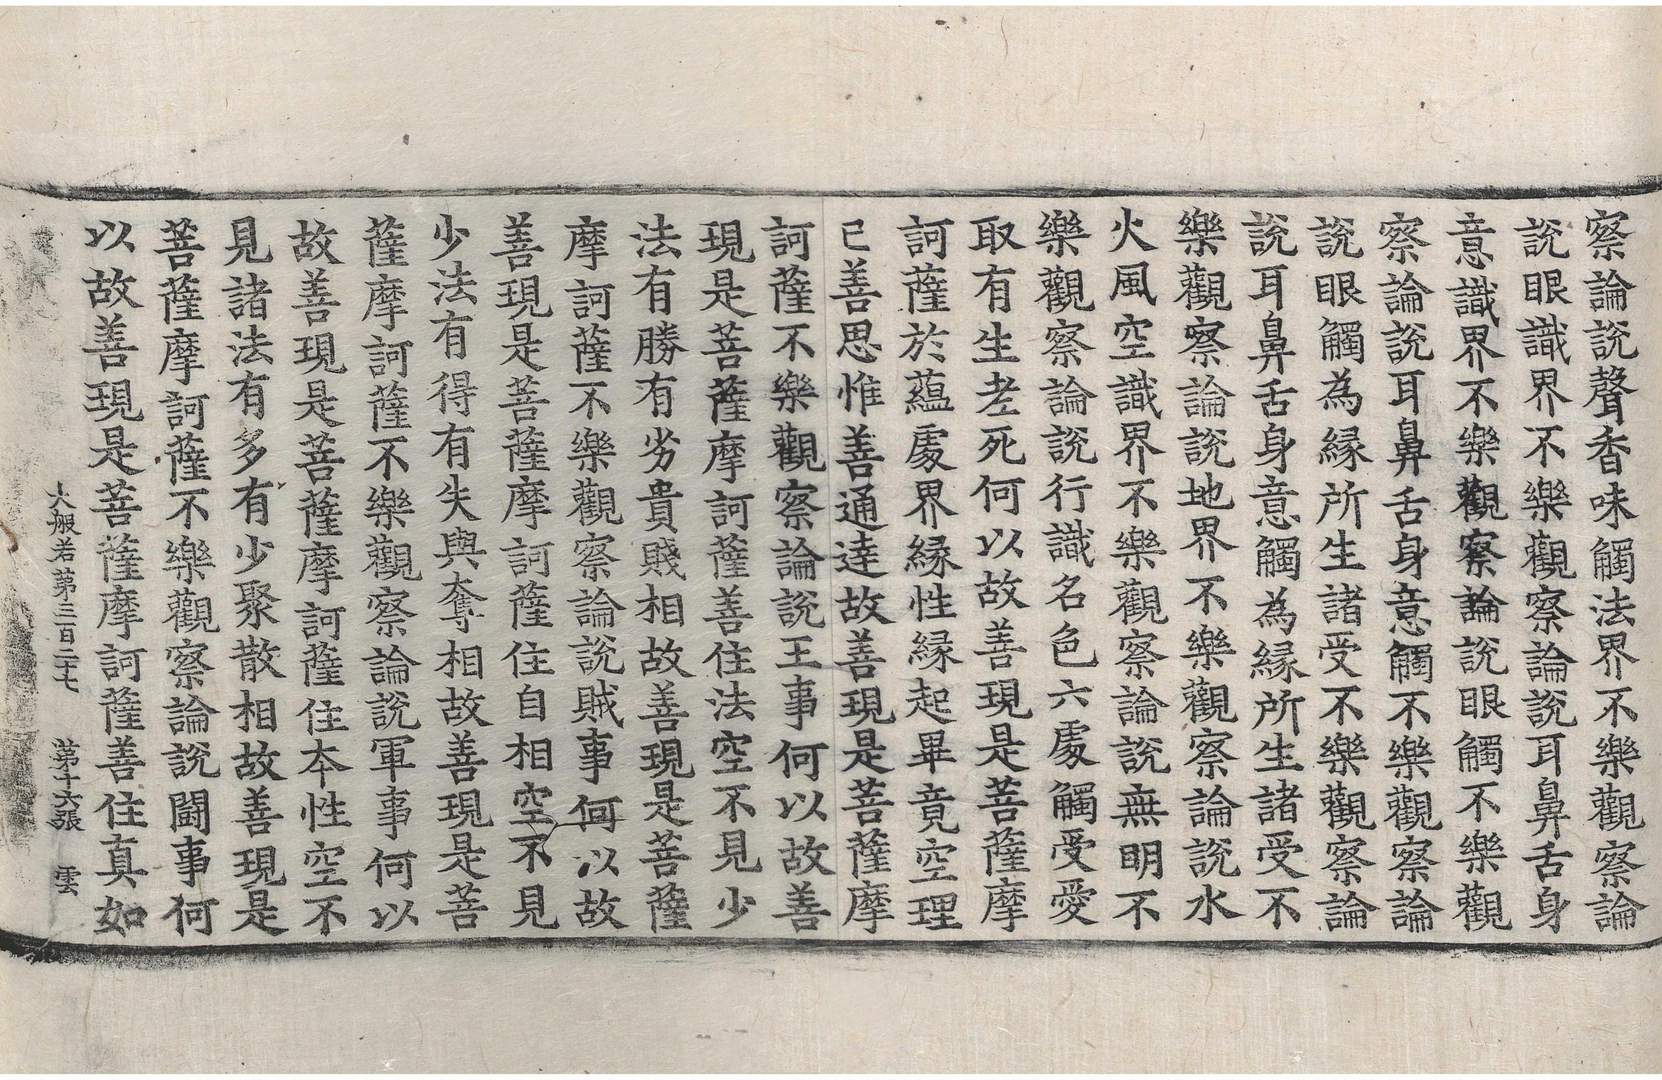 察論說聲香味觸法界不樂觀察論
說眼識界不樂觀察論說耳鼻舌身
意識界不樂觀察論說眼觸不樂觀
察論說耳鼻舌身意觸不樂觀察論
說眼觸為縁所生諸受不樂觀察論
說耳鼻舌身意觸為縁所生諸受不
樂觀察論說地界不樂觀察論說水
火風空識界不樂觀察論說無明不
樂觀察論說行識名色六處觸受愛
取有生老死何以故善現是菩薩摩
訶薩於蘊處界縁性縁起畢竟空理
已善思惟善通達故善現是菩薩摩
訶薩不樂觀察論說王事何以故善
現是菩薩摩訶薩善住法空不見少
法有勝有劣貴賤相故善現是菩薩
摩訶薩不樂觀察論說賊事何以故
善現是菩薩摩訶薩住自相空不見
少法有得有失與奪相故善現是菩
薩摩訶薩不樂觀察論說軍事何以
故善現是菩薩摩訶薩住本性空不
見諸法有多有少聚散相故善現是
菩薩摩訶薩不樂觀察論說鬪事何
以故善現是菩薩摩訶薩善住真如
大般若第三百二十七 第十六張 雲